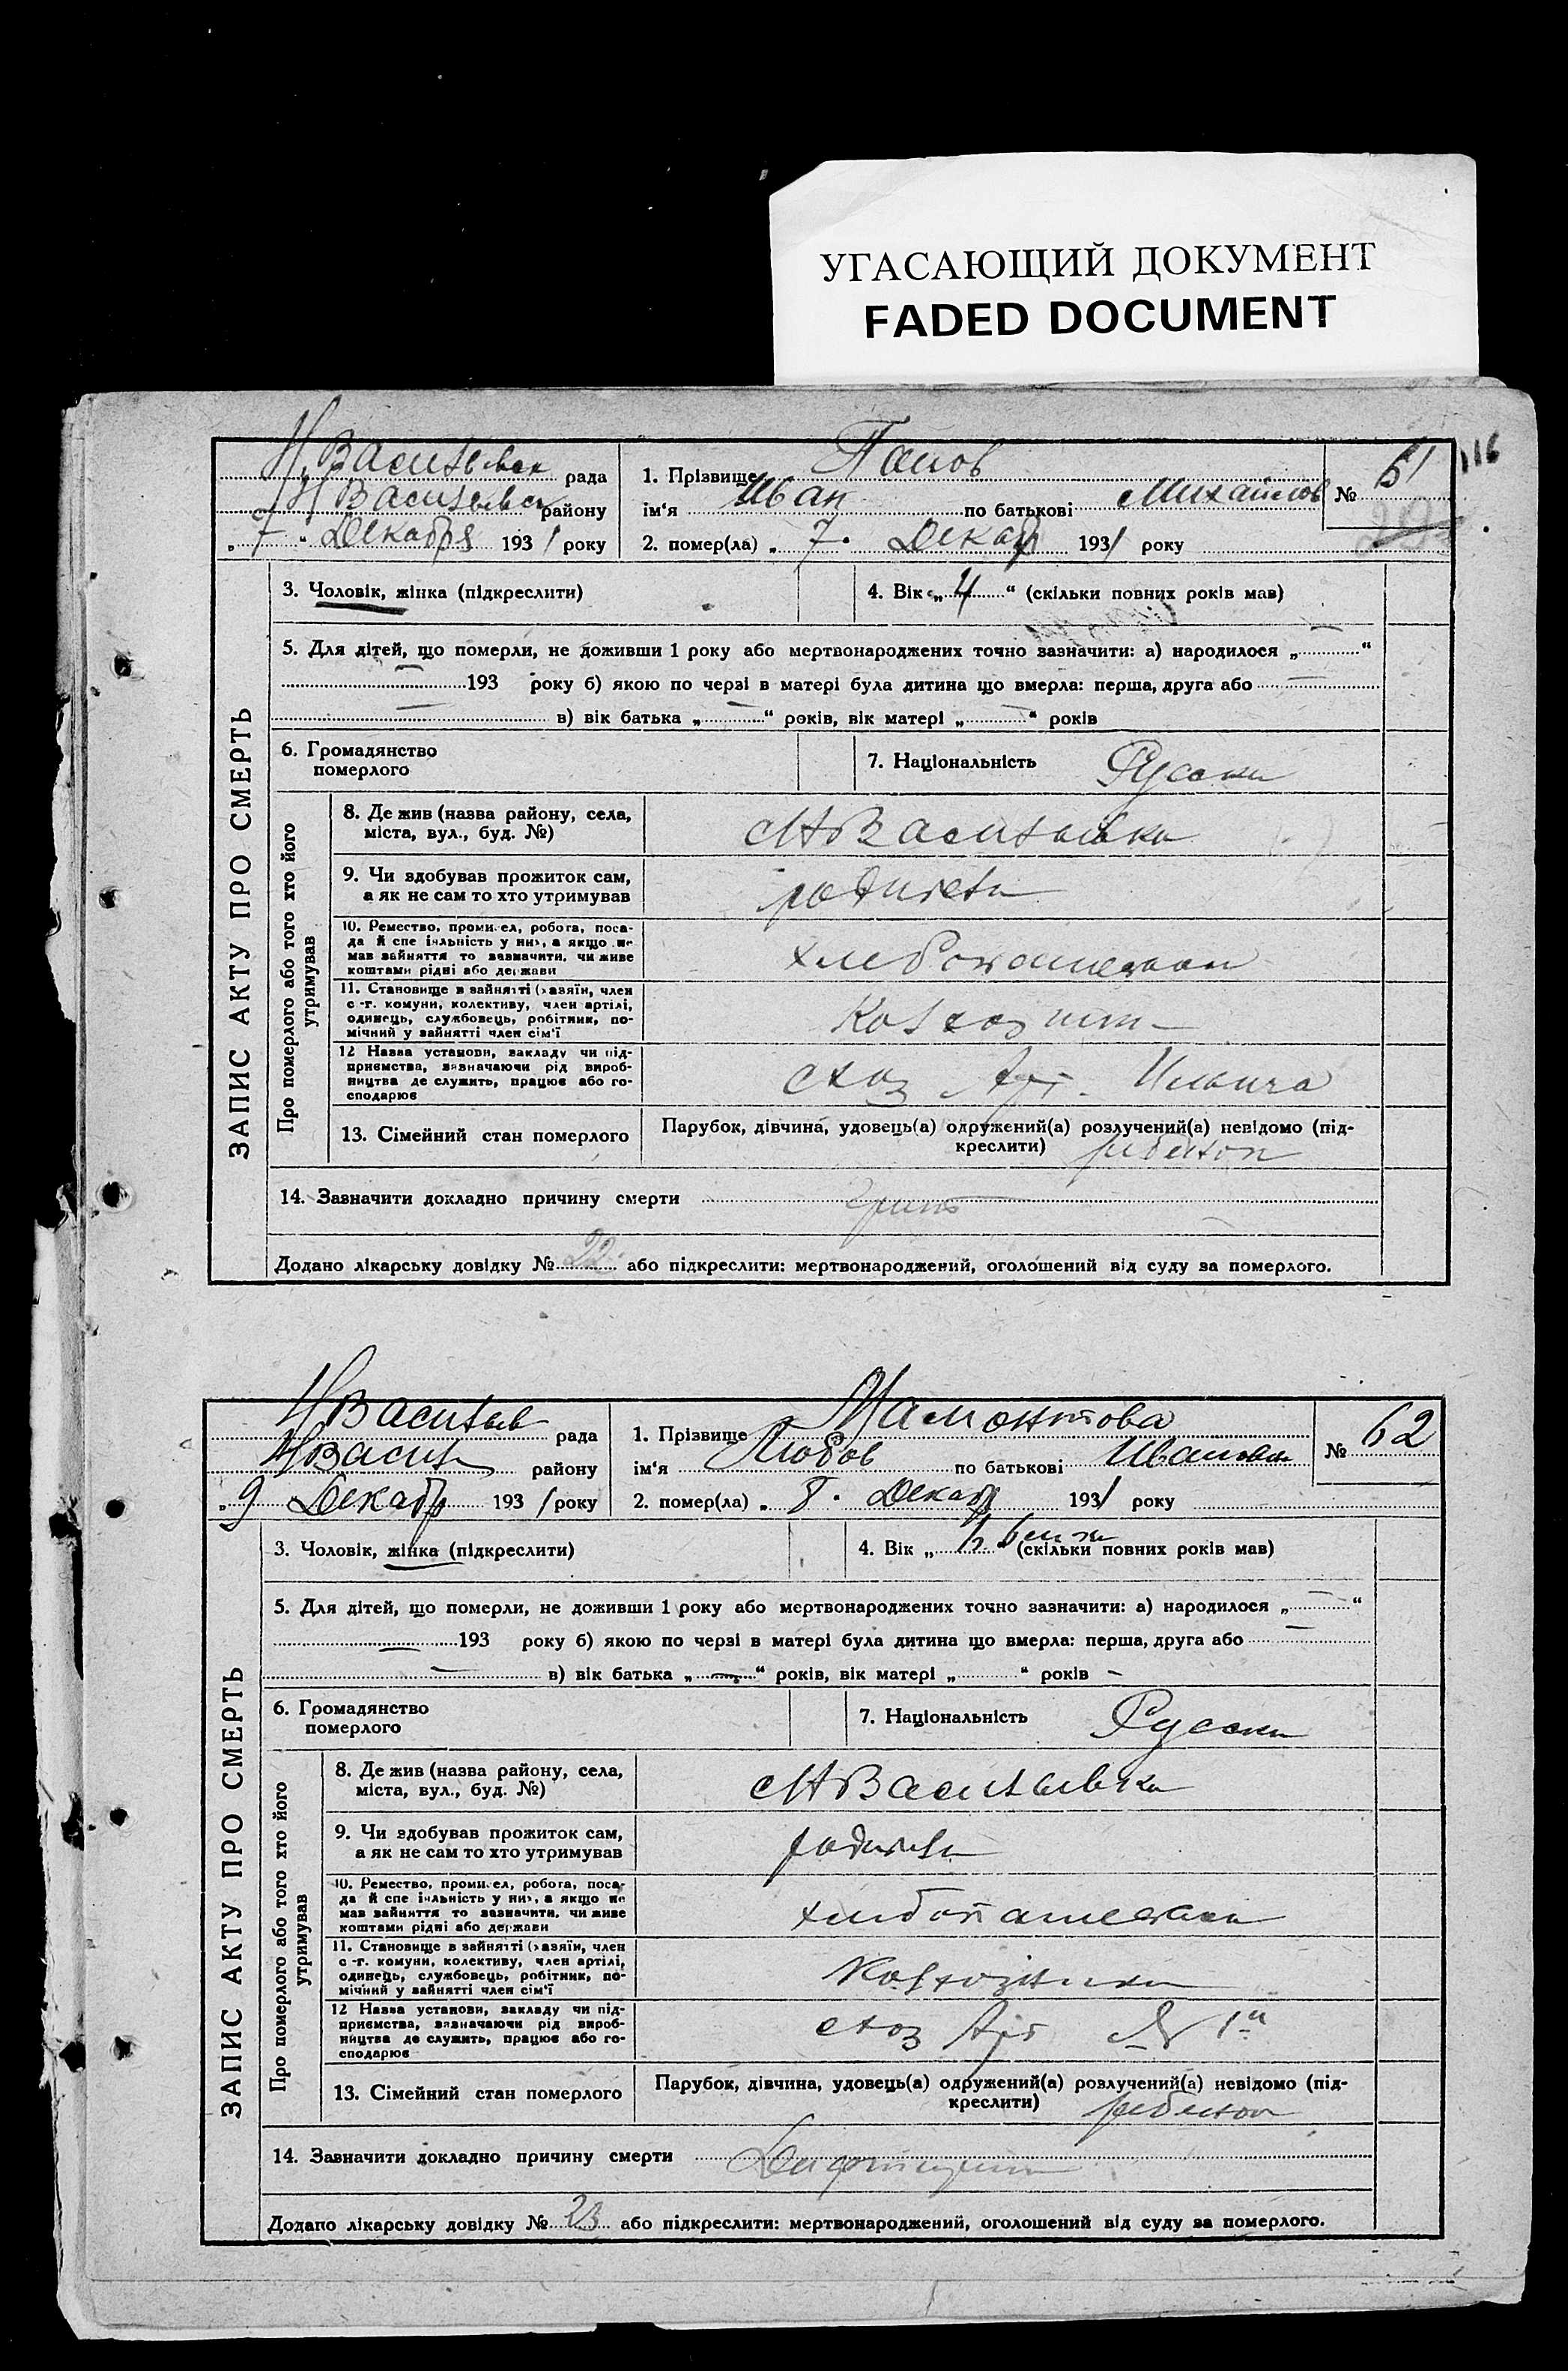 УГАСАЮЩИЙ ДОКУМЕНТ
FADED DOCUMENT
116
Н, Васильевск рада
Н Васильевск району
„7“ Декабря 1931 року
1. Прізвище Панов
ім‘я Иван по батькові Михайлов
№ 61
2. помер(ла) „7. Декабр 1931 року
ЗАПИС АКТУ ПРО СМЕРТЬ
3. Чоловік, жінка (підкреслити)
4. Вік „4“ (скільки повних років мав)
5. Для дітей, що померли, не доживши 1 року або мертвонароджених точно зазначити: а) народилося „ “
193 року б) якою по черзі в матері була дитина що вмерла: перша, друга або
в) вік батька „ “ років, вік матері „ “ років
6. Громадянство
померлого
7. Національність Руски
Про померлого або того хто його
утримував
8. Де жив (назва району, села,
міста, вул., буд. №)
НВасильевка
9. Чи здобував прожиток сам,
а як не сам то хто утримував
родители
10. Ремество, промисел, робота, поса-
да й спеціяльність у них, а якщо не
мав зайняття то зазначити, чи живе
коштами рідні або держави
хлебопашеством
11. Становище в зайнятті (хазяїн, член
с.-г. комуни, колективу, член артілі,
одинець, службовець, робітник, по-
мічний у зайнятті член сім'ї
Колхозник
12 Назва установи, закладу чи під-
приємства, зазначаючи рід вироб-
ництва де служить, працює або го-
сподарює
схоз Арт. Ильича
13. Сімейний стан померлого
Парубок, дівчина, удовець(а) одружений(а) розлучений(а) невідомо (під-
креслити) ребенок
14. Зазначити докладно причину смерти Грипп
Додано лікарську довідку № 22 або підкреслити: мертвонароджений, оголошений від суду за померлого.
НВасильев рада
НВасил району
„9 Декабр 1931 року
1. Прізвище Мамонтова
ім‘я Любов по батькові Ивановн
№ 62
2. помер(ла) „8. Декабр 1931 року
ЗАПИС АКТУ ПРО СМЕРТЬ
3. Чоловік, жінка (підкреслити)
4. Вік „ “ (скільки повних років мав)
5. Для дітей, що померли, не доживши 1 року або мертвонароджених точно зазначити: а) народилося „ “
193 року б) якою по черзі в матері була дитина що вмерла: перша, друга або
в) вік батька „ “ років, вік матері „ “ років
6. Громадянство
померлого
7. Національність Руски
Про померлого або того хто його
утримував
8. Де жив (назва району, села,
міста, вул., буд. №)
НВасильевка
9. Чи здобував прожиток сам,
а як не сам то хто утримував
родители
10. Ремество, промисел, робота, поса-
да й спеціяльність у них, а якщо не
мав зайняття то зазначити, чи живе
коштами рідні або держави
хлебопашеством
11. Становище в зайнятті (хазяїн, член
с.-г. комуни, колективу, член артілі,
одинець, службовець, робітник, по-
мічний у зайнятті член сім'ї
Колхозники
12 Назва установи, закладу чи під-
приємства, зазначаючи рід вироб-
ництва де служить, працює або го-
сподарює
схоз Арт № 1й
13. Сімейний стан померлого
Парубок, дівчина, удовець(а) одружений(а) розлучений(а) невідомо (під-
креслити) ребенок
14. Зазначити докладно причину смерти
Додано лікарську довідку № 23 або підкреслити: мертвонароджений, оголошений від суду за померлого.